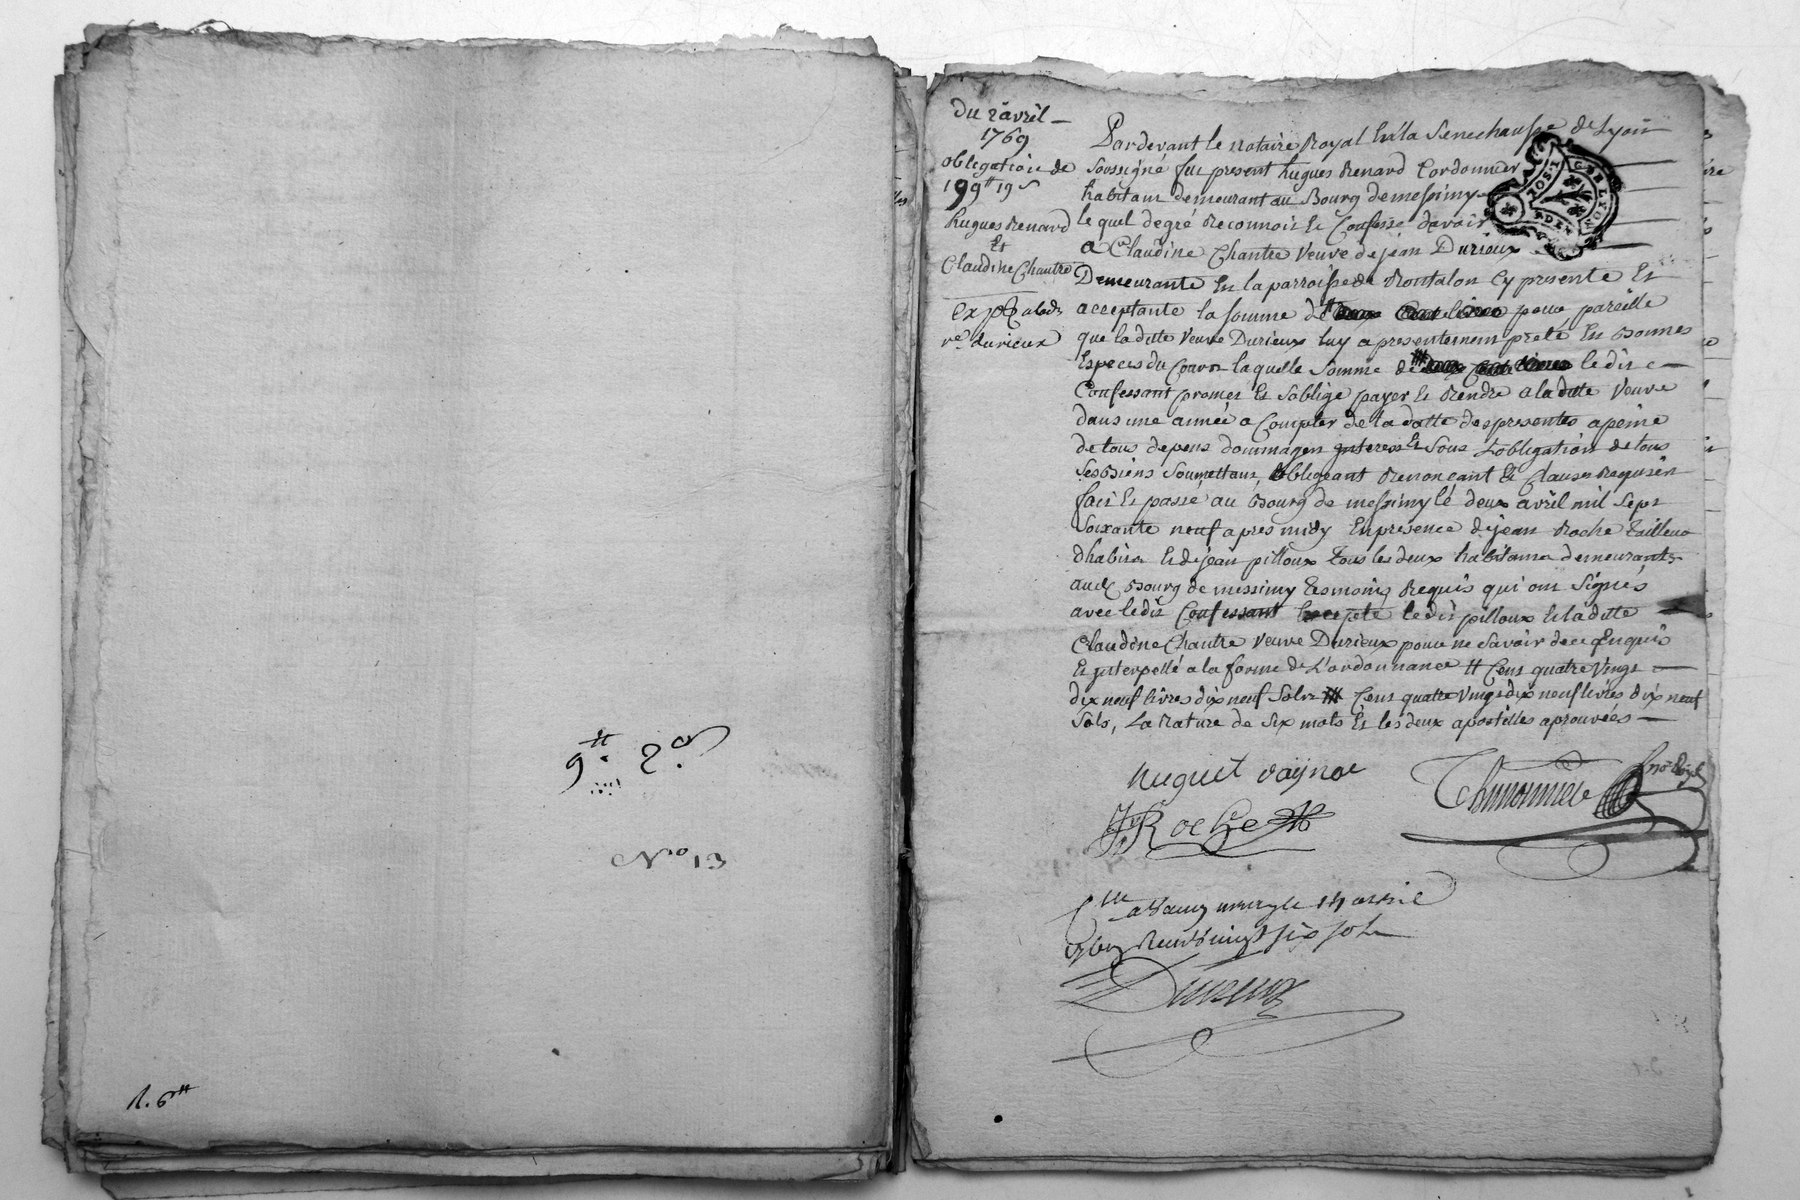 9tt 2d
No 13
R. 6tt
du 2 avril
1769
obligation de
199tt 19s
hugues Renard
Et
Claudine Chantre
ve durieux
Pardevant le notaire Royal En la Senechaussee de Lyon
Soussigné fut present hugues Renard Cordonnier
habitant demeurant au Bourg de messimy
lequel de gré Reconnoit Et Confesse devoir
a Claudine Chantre Veuve de jean Durieux
Demeurante En la parroisse de Rontalon Cy presente Et
acceptante la somme de # pour pareille
que la ditte Veuve Durieux luy a presentement preté En Bonnes
Especes du Cours laquelle Somme de ## le dit
Confessant promet Et S'oblige payer Et Rendre a la ditte Veuve
dans une année a Compter de la datte des presentes a peine
de tous depens dommages interets Et Sous L'obligation de tous
Ses Biens Soumettant obligeant Renonçant Et Clauses Requises
fait Et passé au Bourg de messimy le deux avril mil Sept
Soixante neuf apres midy En presence de jean Roche tailleur
d'habits Et de jean pilloux tous les deux habitants demeurants
aud Bourg de messimy temoins Requis qui ont Signés
avec le dit Confessant Excepté le dit pilloux Et la ditte
Claudine Chantre Veuve Durieux pour ne Savoir de ce Enquis
Et interpellé a la forme de L'ordonnance # Cent quatre Vingt
dix neuf livres dix neuf Sols ## Cent quatre Vingt dix neuf livres dix neuf
Sols, La Rature de Six mots Et les deux apostilles aprouvées
huguet Raynar
J Roche
Thimonnier
no Royal
le 14 avril
Six Sols